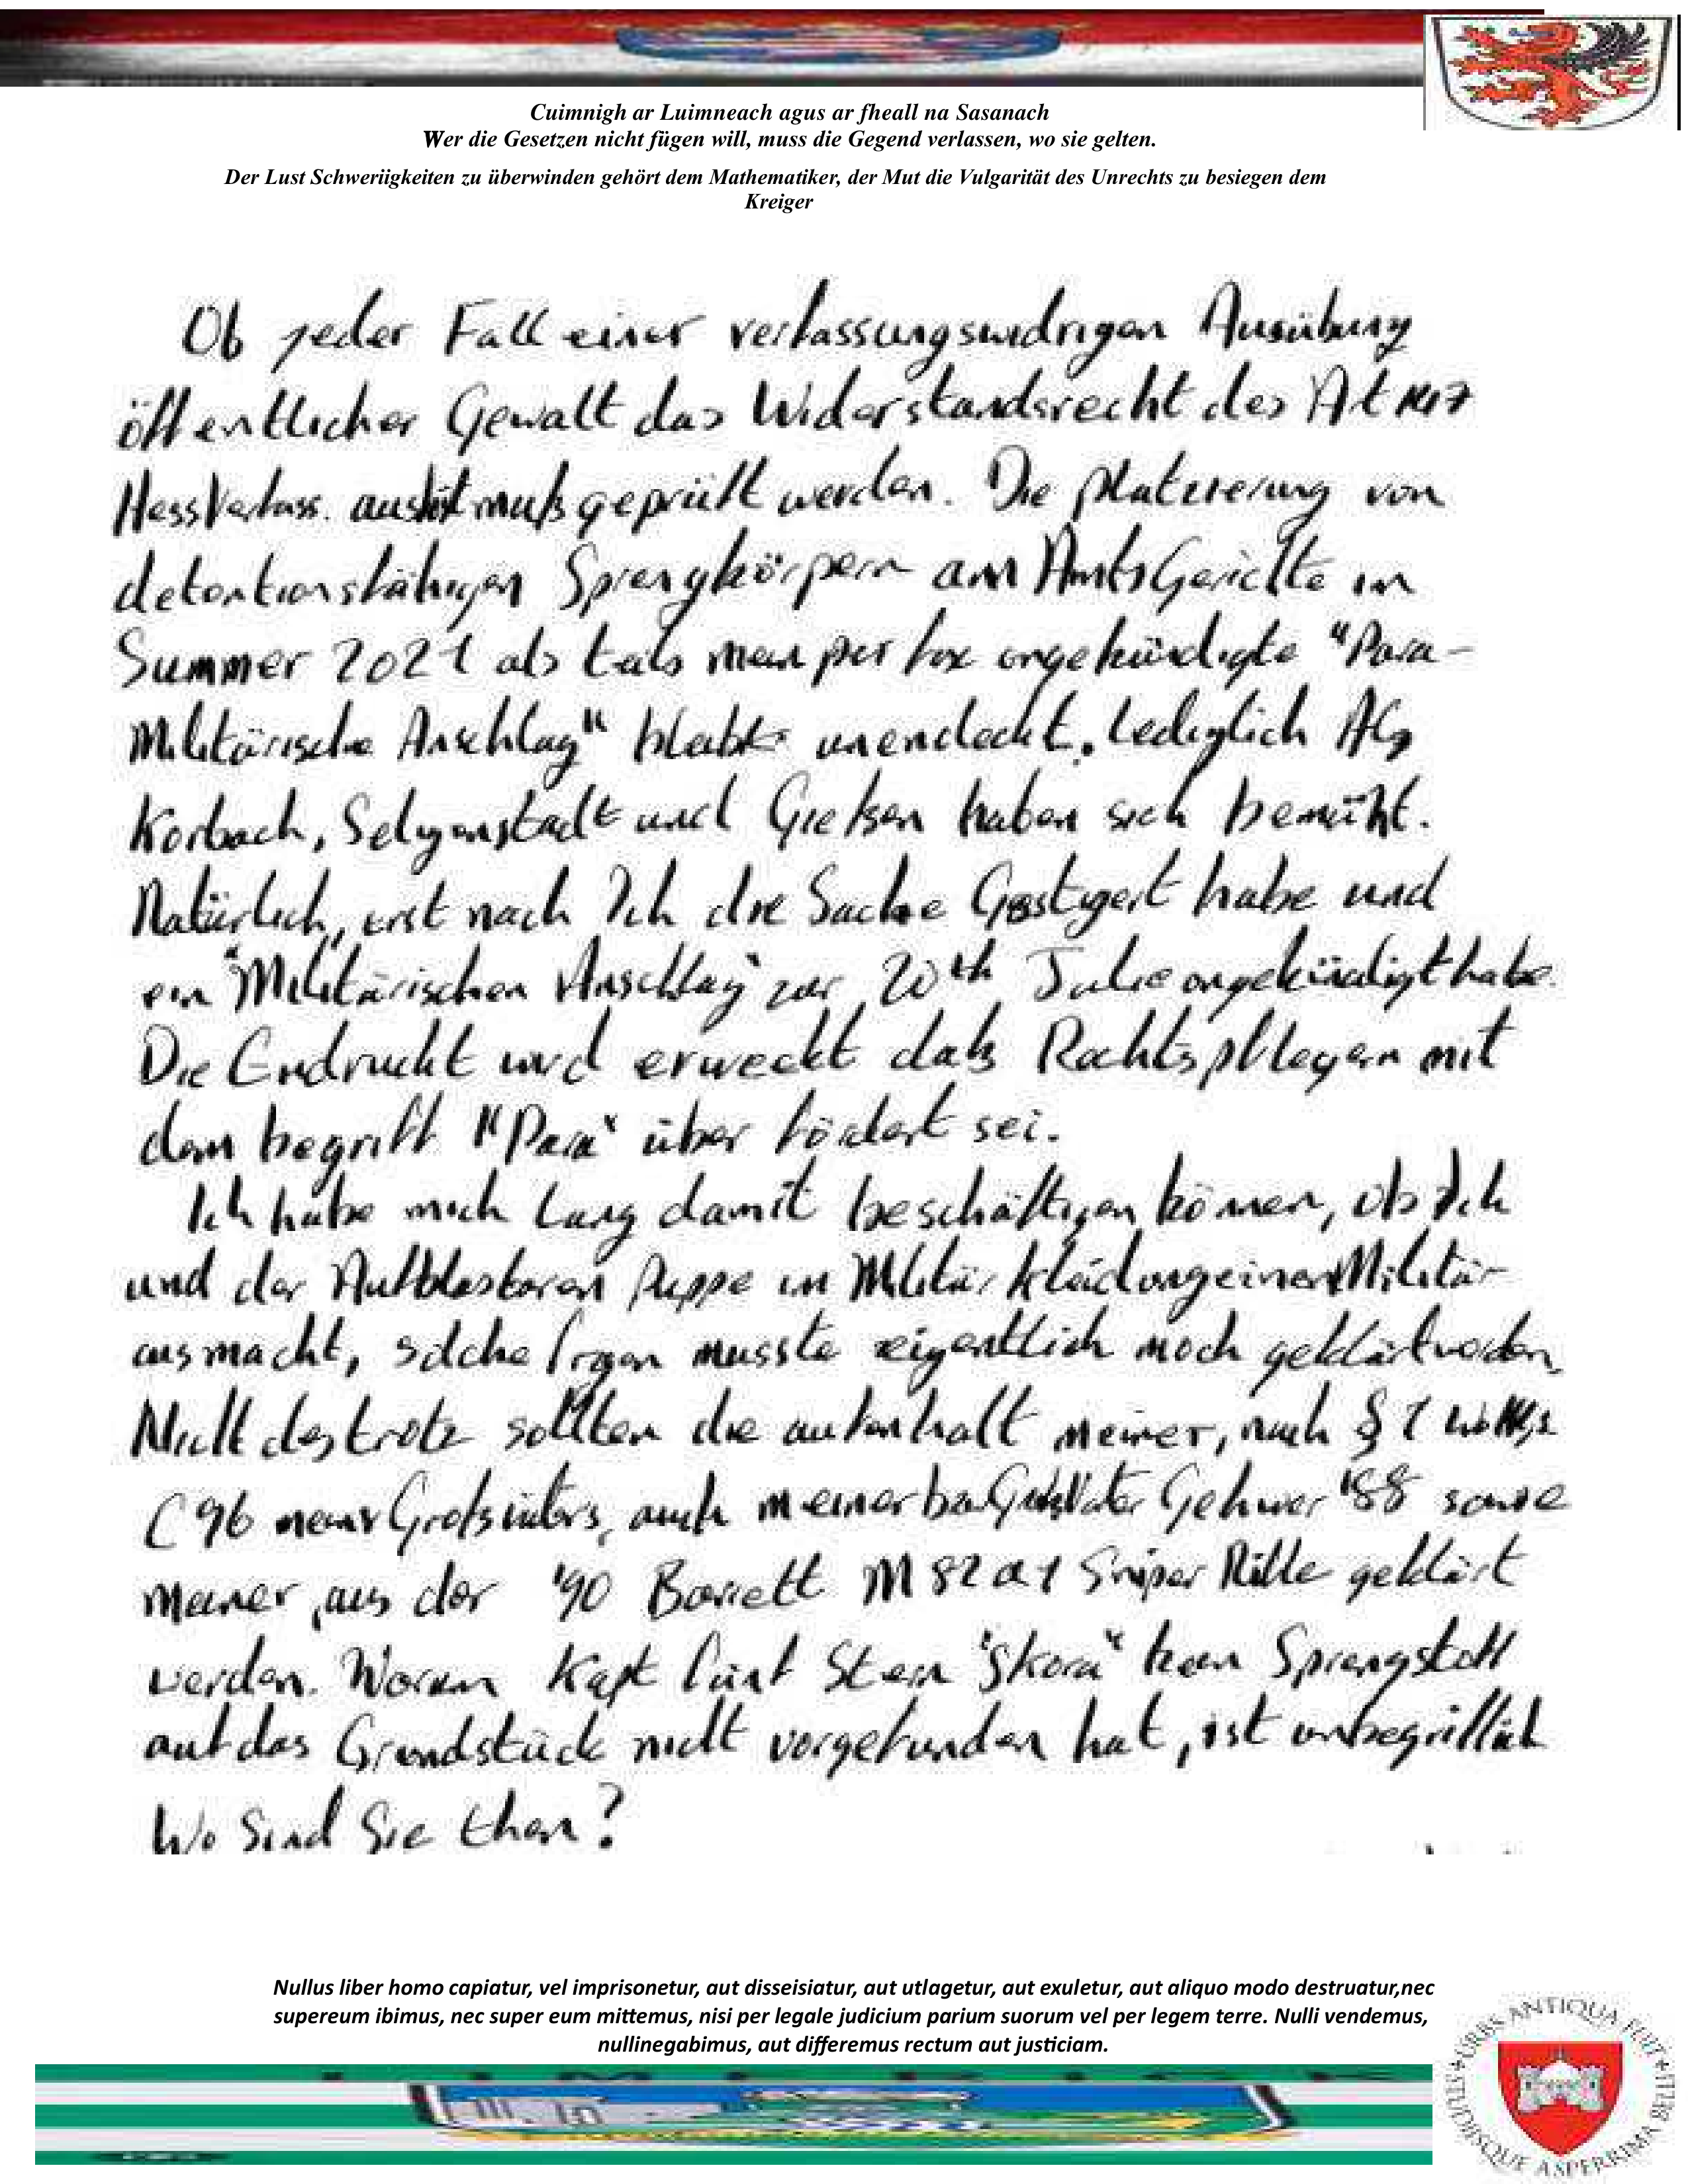 Cuimnigh ar Luimneach agus ar fheall na Sasanach
Wer die Gesetzen nicht fügen will, muss die Gegend verlassen, wo sie gelten.
Der Lust Schweriigkeiten zu überwinden gehört dem Mathematiker, der Mut die Vulgarität des Unrechts zu besiegen dem
Kreiger
Ob jeder Fall einer verfassungswidrigen Ausübung
öffentlicher Gewalt das Widerstandsrecht des At 147
HessVerfass. auslöst muß geprüft werden. Die platzierung von
detontionsfähigen Sprengkörpern am AmtsGerichte in
Summer 2021 als teils man per fax angekündigte "Para-
Militärische Anschlag" bleibt unendeckt. Lediglich AG
Korbach, Selgenstadt und Gießen haben sich bemüht.
Natürlich, erst nach Ich die Sache Gestigert habe und
ein "Militärischen Anschlag" zur 20th Julie angekündigt habe.
Die Endruckt wird erweckt daß Rechtspflegern mit
dem begriff "Para" über fördert sei.
Ich habe mich lang damit beschäftigen können, ob Ich
und der Aufblasbaren Puppe in Militär kleidung einen Militär
ausmacht, solche fragen musste eigentlich noch geklärt werden
Nicht destrotz sollten die aufenhalt meiner, nach § 1
C96 meines Großvaters, auch meiner Gehwer '88 sowie
meiner, aus der '90 Barrett M82a1 Sniper Rifle geklärt
werden. Worum Kapt fünf Stern "Skora" keen Sprengstoff
auf das Grundstück nicht vorgefunden hat, ist unbegrifflich
Wo Sind Sie than?
Nullus liber homo capiatur, vel imprisonetur, aut disseisiatur, aut utlagetur, aut exuletur, aut aliquo modo destruatur,nec
supereum ibimus, nec super eum mittemus, nisi per legale judicium parium suorum vel per legem terre. Nulli vendemus,
nullinegabimus, aut differemus rectum aut justiciam.
URBS ANTIQUA FUIT STUDIISQUE ASPERRIMA BELLI